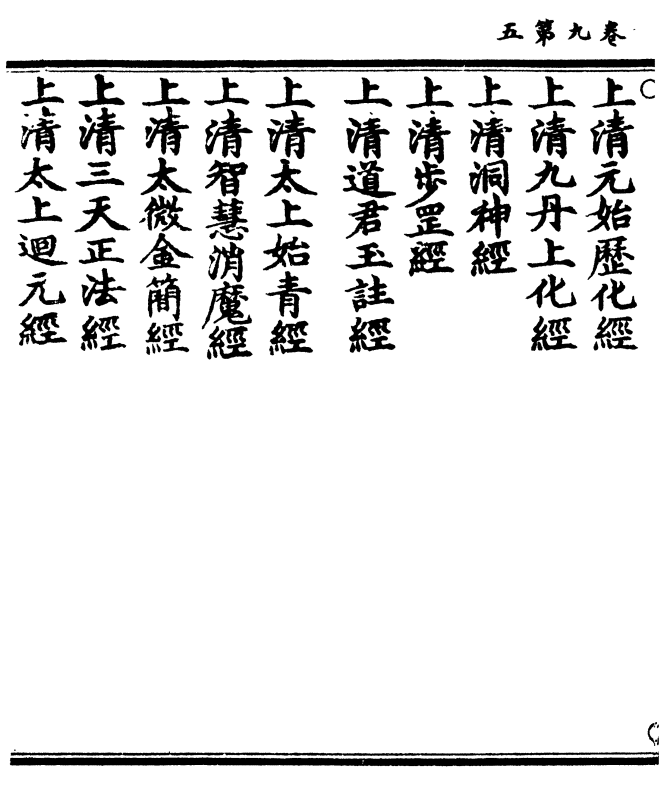 卷九第五
上清元始歷化經
上清九丹上化經
上清洞神經
上清步罡經
上清道君玉註經
上清太上始青經
上清智慧消魔經
上清太微金簡經
上清三天正法經
上清太上迴元經